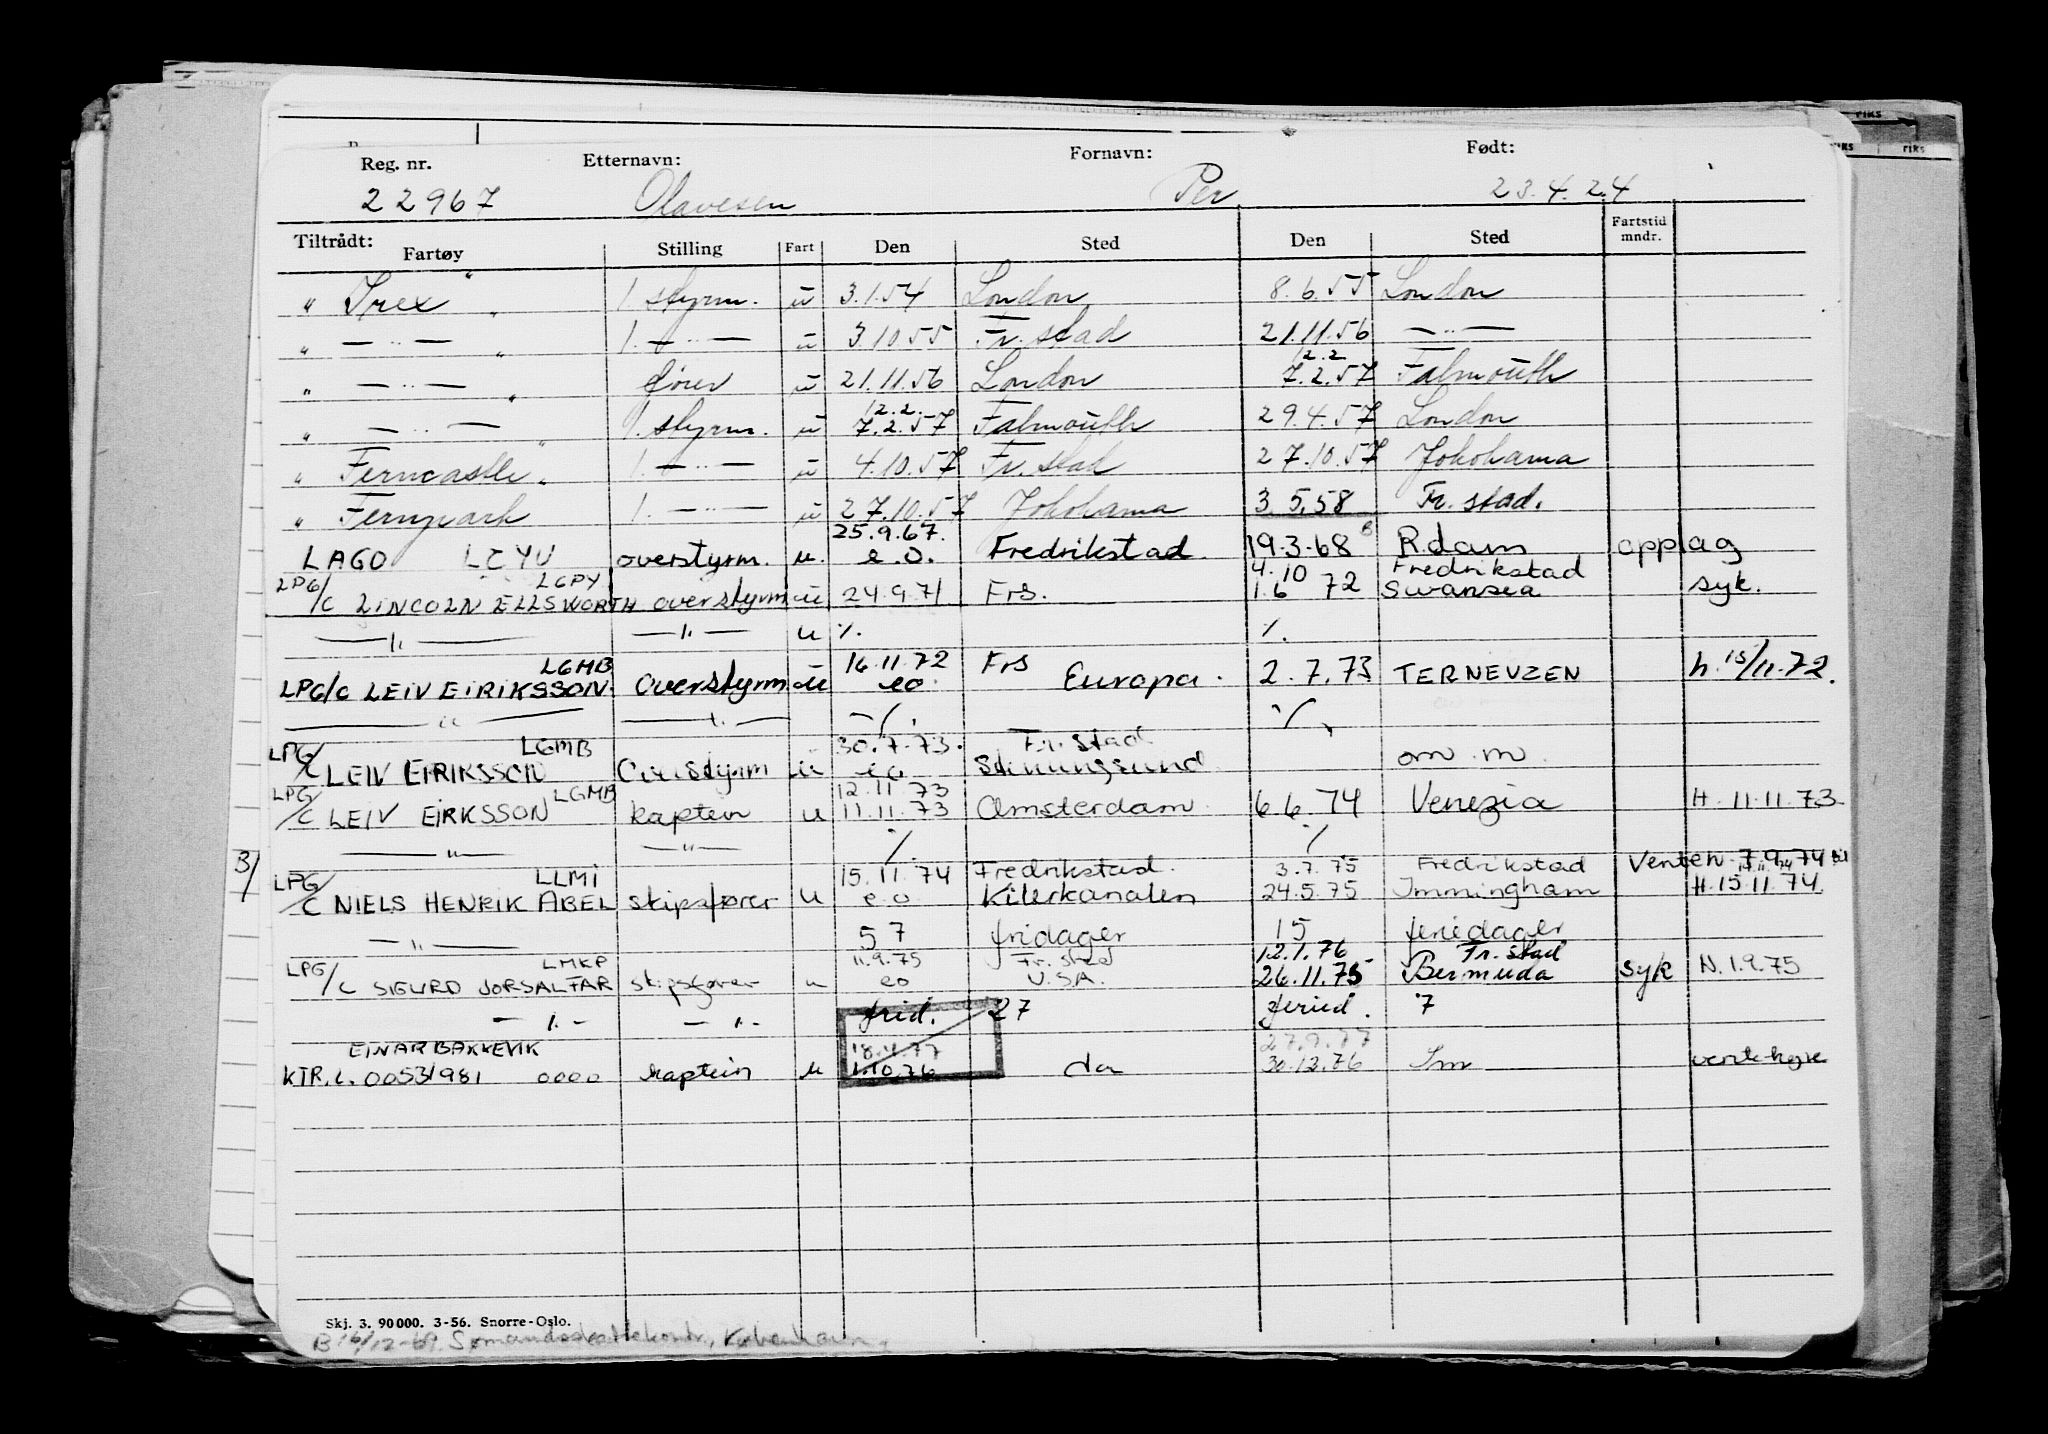 Reg. nr. Etternavn: Fornavn: Født:
22967 Olavesen Per 23.4.24
Tiltrådt: Fartøy Stilling Fart Den Sted Den Sted Fartstid mndr.
" Trex " 1. styrm. u 3.1.54 London 8.6.55 London
" — " — " 1. — " — u 3.10.55 Fr. stad 21.11.56 — " —
12.2
" — " — " fører u 21.11.56 London 7.2.57 Falmouth
12.2.
" — " — " 1. styrm. u 7.2.57 Falmouth 29.4.57 London
" Ferncastle " 1. — " — u 4.10.57 Fr. stad 27.10.57 Jokohama
" Fernpark 1. — " — u 27.10.57 Jokohama 3.5.58 Fr. stad.
25.9.67.
LAGO LCYU overstyrm. u. e.o. Fredrikstad 19.3.68 R.dam opplag
LGPY 4.10 Fredrikstad
LPG/C LINCOLN ELLSWORTH overstyrm u 24.9.71 Frs. 1.6 72 Swansea syk.
— " — — " — u %. %.
LGMB 16.11.72 Frs
LPG/C LEIV EIRIKSSON. Overstyrm u eo. Europa. 2.7.73 TERNEUZEN h. 15/11.72.
— " — — " — %. %
LGMB 30.7.73. Fr. stad
LPG/C LEIV EIRIKSSON Overstyrm u eo Stenungsund om. m.
LGMB 12.11.73
LPG/C LEIV EIRKSSON kaptein u 11.11.73 Amsterdam. 6.6.74 Venezia H. 11.11.73
— " — — " — %. %
B/ LLMI 15.11.74 Fredrikstad. 3.7.75 Fredrikstad Venteh. 7.9.74 til 14.11.74
LPG/C NIELS HENRIK ABEL skipsfører u e.o Kilerkanalen 24.5.75 Immingham H. 15.11.74
— " — 57 fridager 15 feriedager
LMKP 11.9.75 Fr. stad 12.1.76 Fr. stad
LPG/C SIGURD JORSALFAR skipsfører u eo U.S.A. 26.11.75 Bermuda syk N. 1.9.75
— " — — " — frid. 27 feried. 7
EINAR BAKKEVIK 27.9.77
KTR.L. 0053/981 0000 kaptein u 1.10.76 da 30.12.76 Sm
Skj. 3. 90000. 3-56. Snorre-Oslo.
B 16/12-69. Sømandsskattekontr., København.